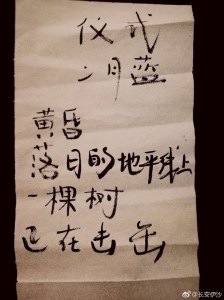 仪式
二月蓝
黄昏
落日的地平线上
一棵树
正在击缶
@长安伊沙